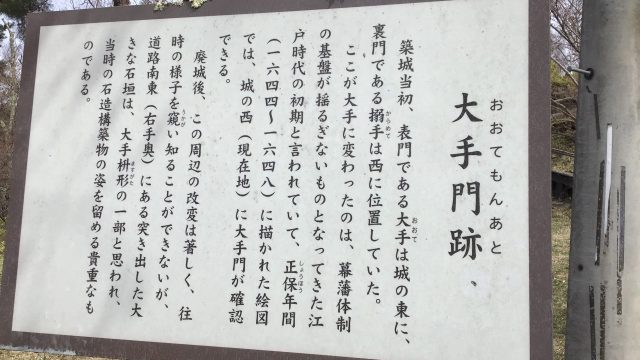 おおてもんあと
大手門跡
築城当初、表門である大手は城の東に、
おおて
裏門である搦手は西に位置していた。
からめて
ここが大手に変わったのは、幕藩体制
の基盤が揺るぎないものとなってきた江
戸時代の初期と言われていて、正保年間
しょうほう
(一六四四〜一六四八)に描かれた絵図
では、城の西(現在地)に大手門が確認
できる。
廃城後、この周辺の改変は著しく、往
時の様子を窺い知ることができないが、
うかが
道路南東(右手奥)にある突き出した大
きな石垣は、大手枡形の一部と思われ、
ますがた
当時の石造構築物の姿を留める貴重なも
のである。